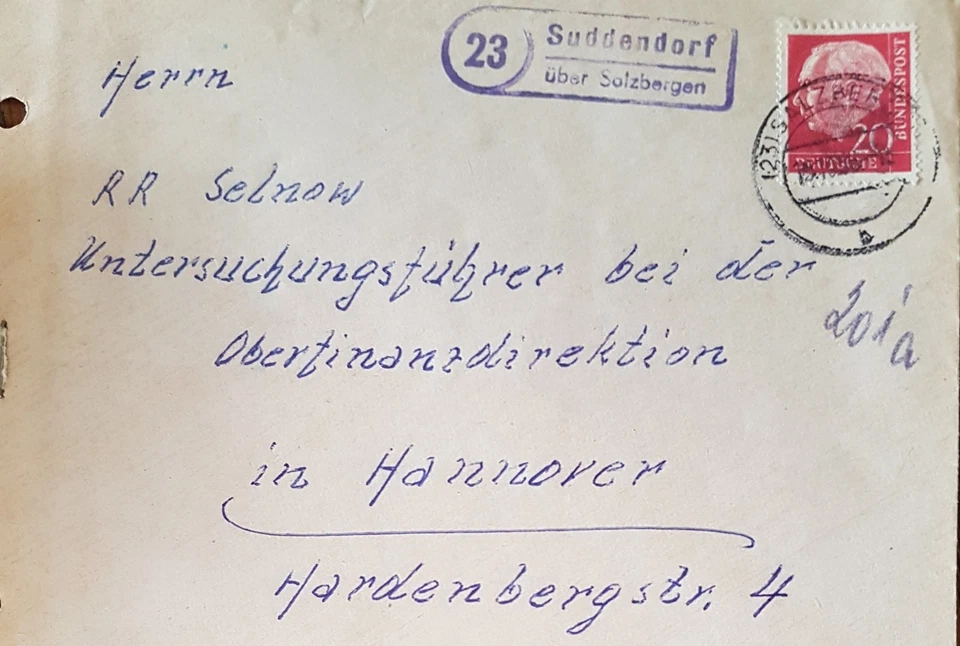 23
Suddendorf
über Salzbergen
20
DEUTSCHE
BUNDESPOST
(23) SALZBERGEN
b
Herrn
RR Selnow
Untersuchungsführer bei der
Oberfinanzdirektion
201a
in Hannover
Hardenbergstr. 4